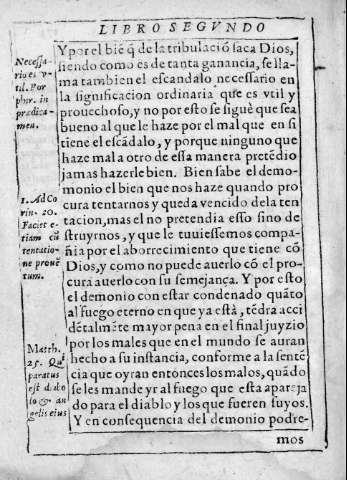 LIBRO SEGVNDO
Y por el bié q̃ de la tribulació saca Dios,
siendo como es de tanta ganancia, se lla-
ma tambien el escandalo necessario en
la significacion ordinaria que es vtil y
prouechoso, y no por esto se siguè que sea
bueno al que le haze por el mal que en si
tiene el escãdalo, y porque ninguno que
haze mal a otro de essa manera pretẽdio
jamas hazerle bien. Bien sabe el demo-
monio el bien que nos haze quando pro
cura tentarnos y queda vencido dela ten
tacion, mas el no pretendia esso sino de
struyrnos, y que le tuuiessemos compa-
ñia por el aborrecimiento que tiene cõ
Dios, y como no puede auerlo cõ el pro-
cura auerlo con su semejança. Y por esto
el demonio con estar condenado quãto
al fuego eterno en que ya està, tẽdra acci
dẽtalmẽte mayor pena en el final juyzio
por los males que en el mundo se auran
hecho a su instancia, conforme a la sentẽ
cia que oyran entonces los malos, quãdo
se les mande yr al fuego que esta apareja
do para el diablo y los que fueren suyos.
Y en consequencia del demonio podre-
mos
Necessa-
rio es v-
til. Por
phyr. in
predica-
men.
1. Ad Co
rin. 10.
Faciet e-
tiam cũ
tentatio-
ne prouẽ
tum.
Matth.
25. Qui
paratus
est diabo
lo & an
gelis eius